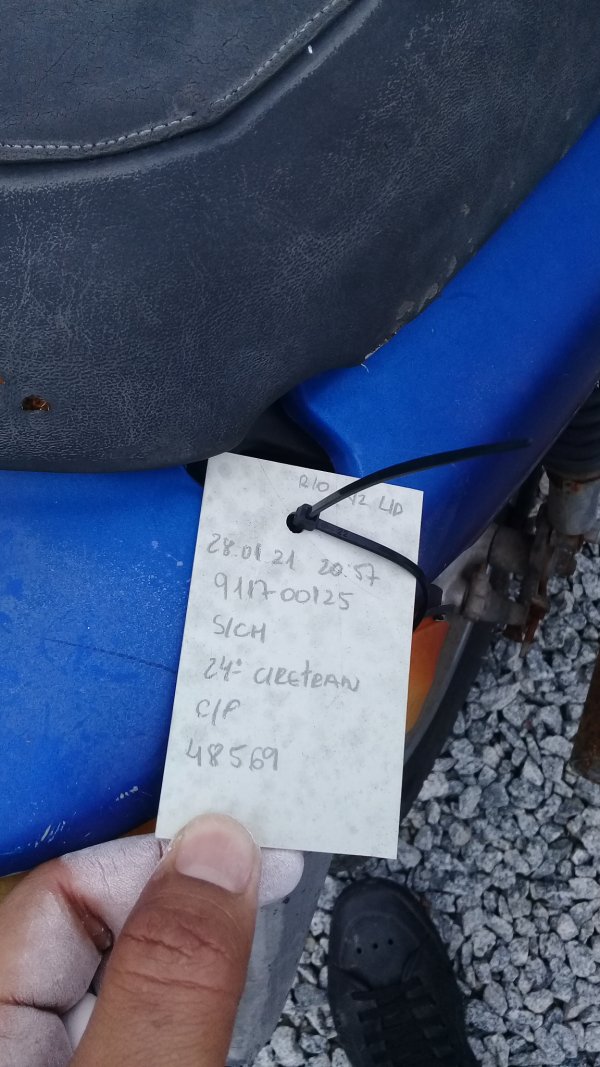 R/O V2 L/D
28.01.21 20:57
9117-00125
S/CH
24ª CIRETRAN
C/P
48569